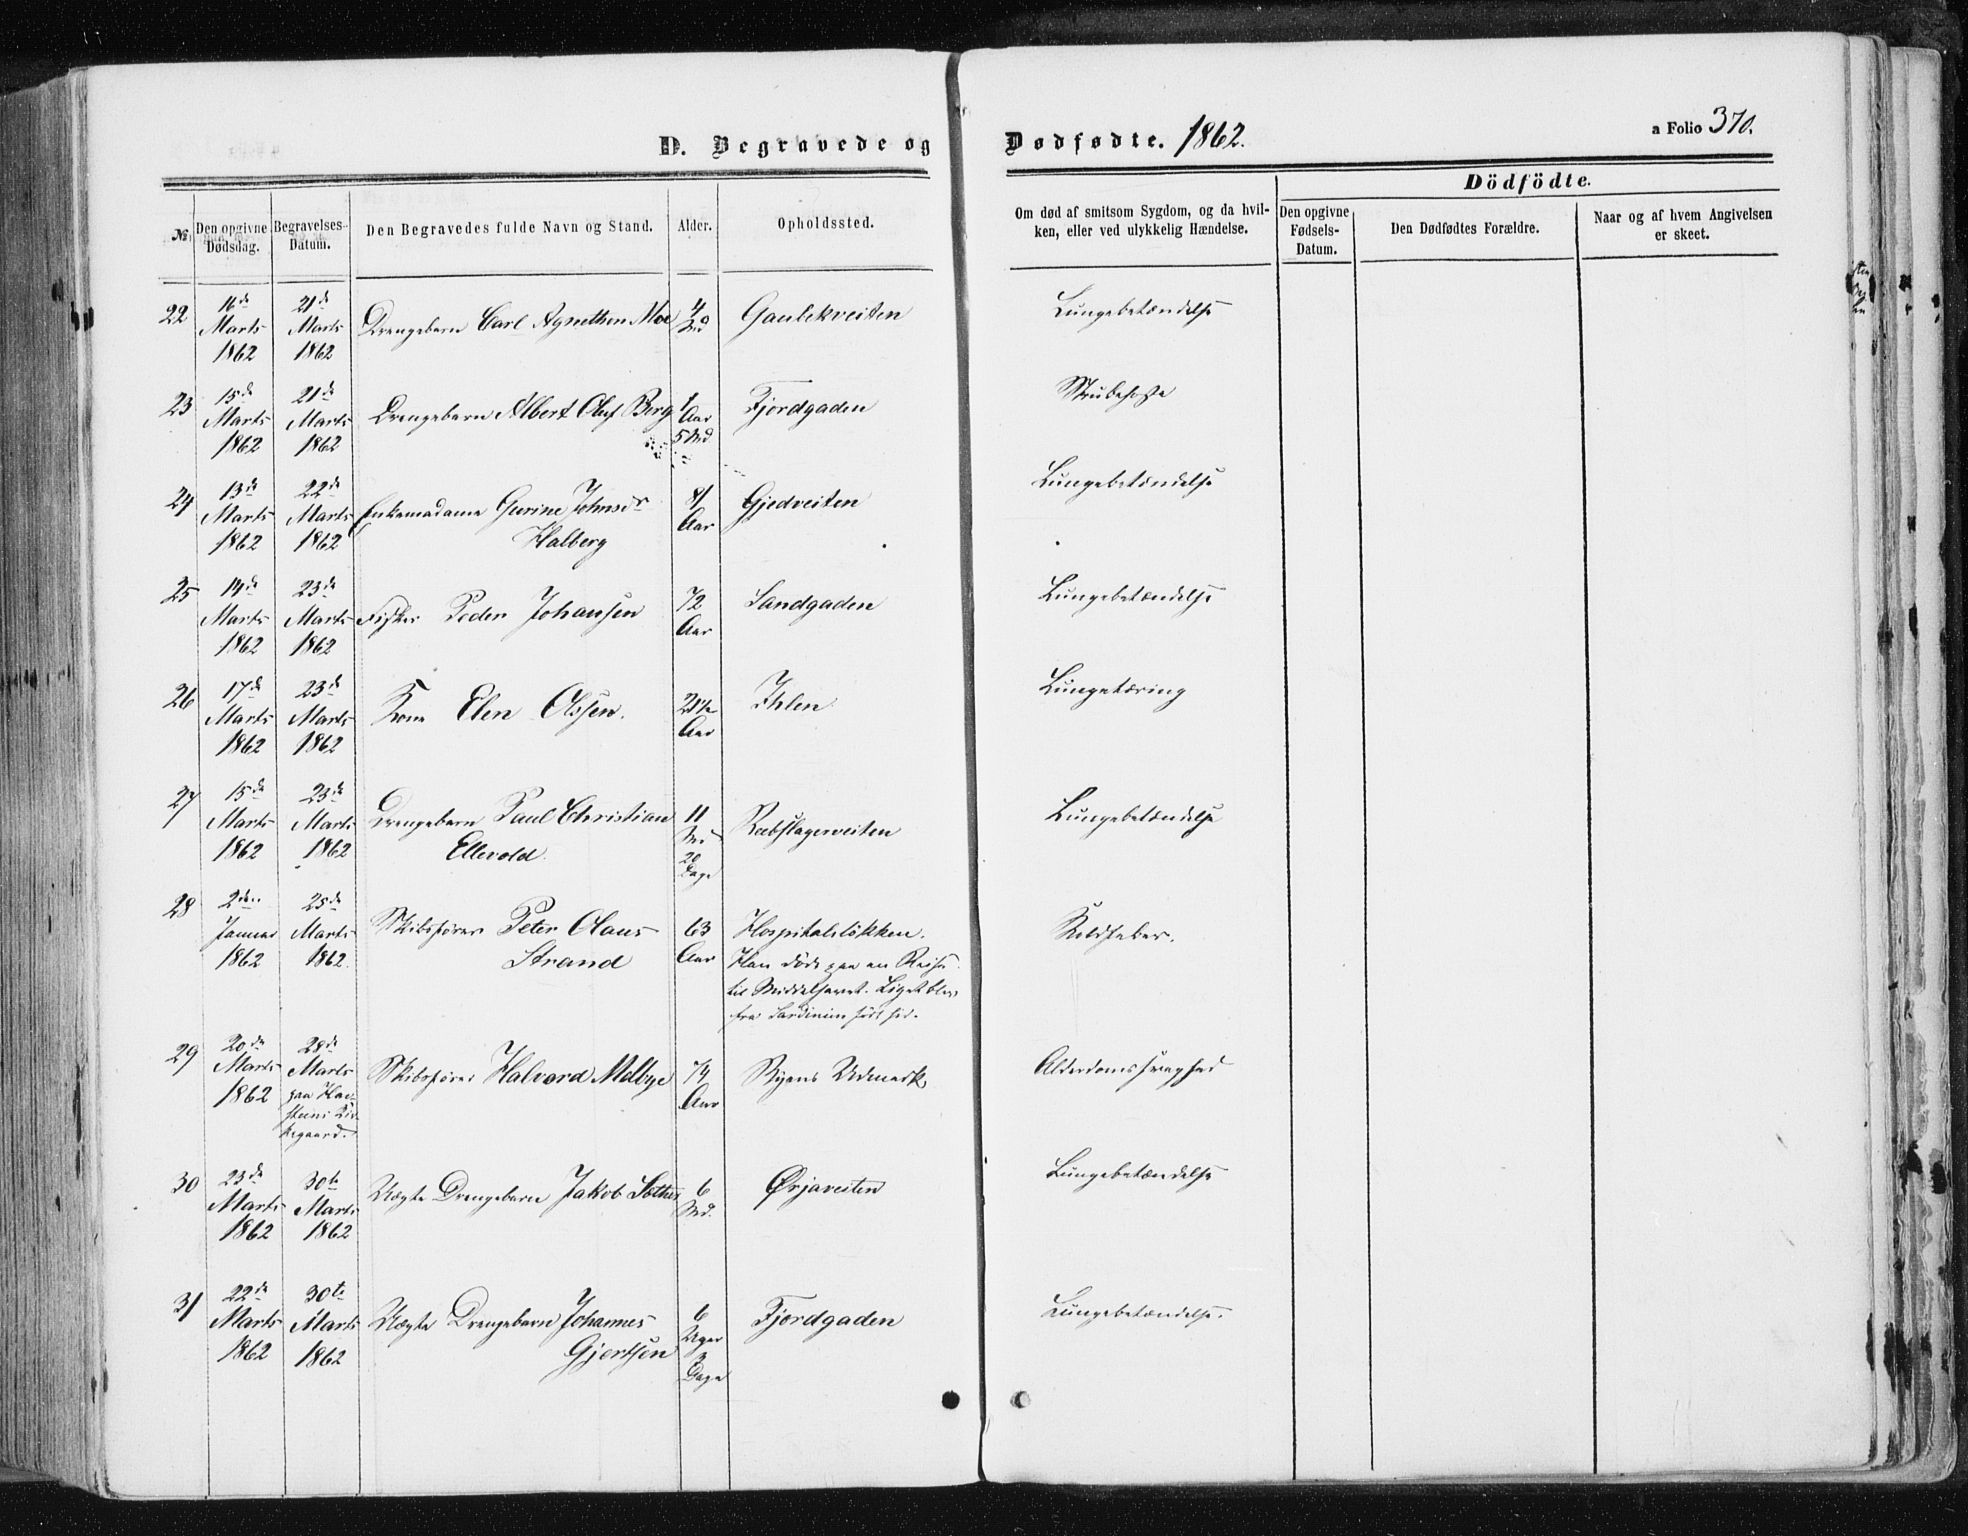 D. Begravede og Dødfødte. 1862.
a Folio 370.
Dödfödte.
№
Den opgivne Dødsdag.
Begravelses-Datum.
Den Begravedes fulde Navn og Stand.
Alder.
Opholdssted.
Om død af smitsom Sygdom, og da hvil-
ken, eller ved ulykkelig Hændelse.
Den opgivne Fødsels-Datum.
Den Dødfødtes Forældre.
Naar og af hvem Angivelsen
er skeet.
22 16de Marts 1862 21de Marts 1862 Drengebarn Carl Agnethon Moe 4 Md Gaulekveiten Lungebetændelse
23 15de Marts 1862 21de Marts 1862 Drengebarn Albert Oluf Berg 1 Aar 5 Md. Fjordgaden Strubehoste
24 13de Marts 1862 22de Marts 1862 Enkemadame Gurine Johnsdr Halberg 81 Aar Gjedveiten Lungebetændelse
25 14de Marts 1862 23de Marts 1862 Fisker Peder Johansen 72 Aar Sandgaden Lungebetændelse
26 17de Marts 1862 23de Marts 1862 Kone Elen Olssen. Aar Ihlen Lungetæring
27 15de Marts 1862 23de Marts 1862 Drengebarn Paul Christian Ellevold. 11 Md 20 Dage Rebslagerveiten Lungebetændelse
28 2den Januar 1862 25de Marts 1862. Skibsfører Peter Olaus Strand 63 Aar Hospitalsløkken.
Han døde paa en Reise
til Middelhavet. Liget blev
fra Sardinien ført hid.
Koldfeber.
29 20de Marts 1862 28de Marts paa Hav-
steins Kir-
kegaard. Skibsfører Halvard Melbye 74 Aar Byens Udmark Alderdomssvaghed
30 23de Marts 1862 30te Marts 1862 Uægte Drengebarn Jakob 6 Md. Ørjaveiten Lungebetændelse
31 22de Marts 1862 30te Marts 1862 Uægte Drengebarn Johannes Gjertsen 6 Uger Dage Fjordgaden Lungebetændelse.